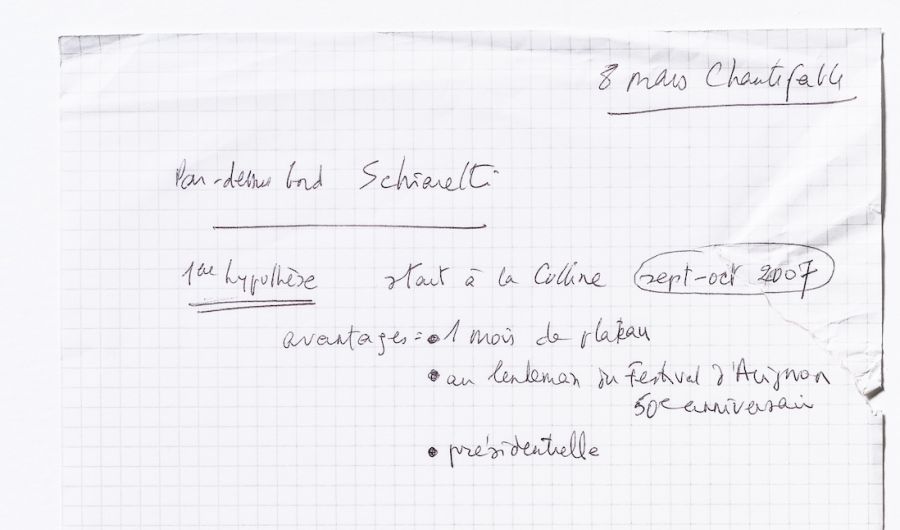 8 mars Chantefable
Par-dessus bord Schiaretti
1ère hypothèse start à la Colline sept-oct 2007
avantages = • 1 mois de plateau
• au lendemain du Festival d'Avignon
50e anniversaire
• présidentielle